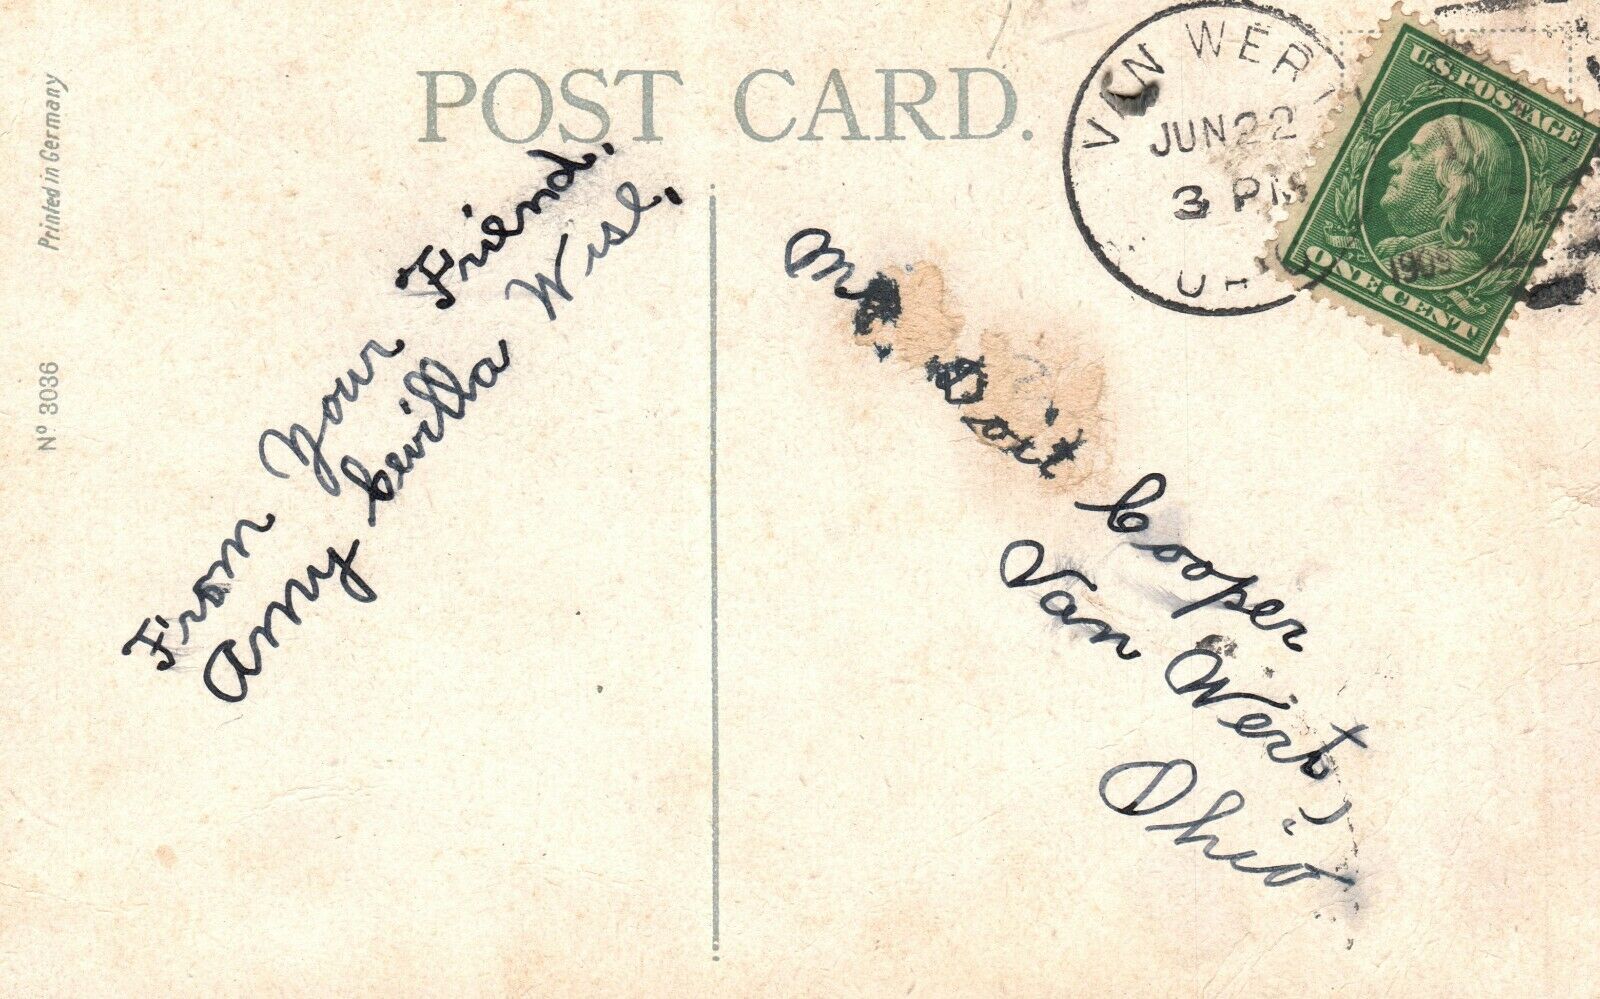 POST CARD.
Printed in Germany
Nº 3036
VAN WERT
JUN 22
3 PM
1909
U.S. POSTAGE
ONE CENT
From Your Friend.
Amy Cevilla Wise.
Mr. Doit Cooper
Van Wert,
Ohio